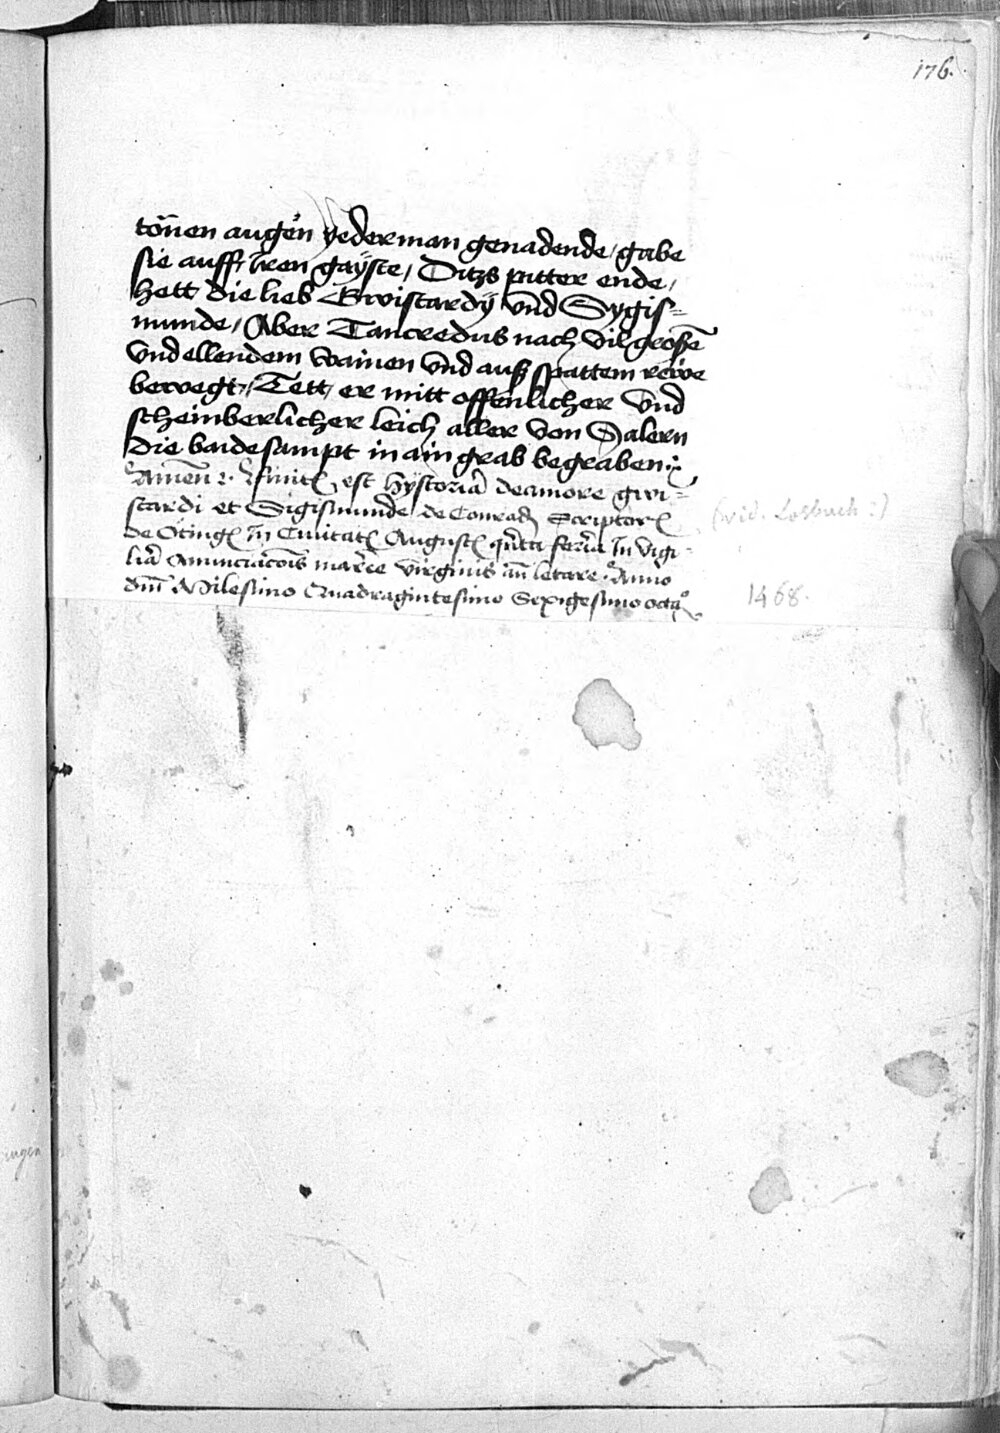 176.
tönen augen yederman genadende / gabe
sie auff Iren gayste / Ditzs pitter ende /
hett die lieb Gwistardÿ vnd Sygis=
munde / Aber Tancredus nach vil großē
vnd ellendem wainen vnd auß spattem rewe
bewegt / Tett er mitt offenlicher vnd
scheinberlicher leich aller von Salern
die baide sampt in ain grab begraben
Amen Finit est hystoria de amore gwi=
stardi et Sigismunde de Conrad Scriptor
de Oting In Ciuitate August feria In vigi=
lia Anunciacōis marie virginis an letare Anno
dm̄ Milesimo Quadragintesimo Sexigesimo octa°
1468.